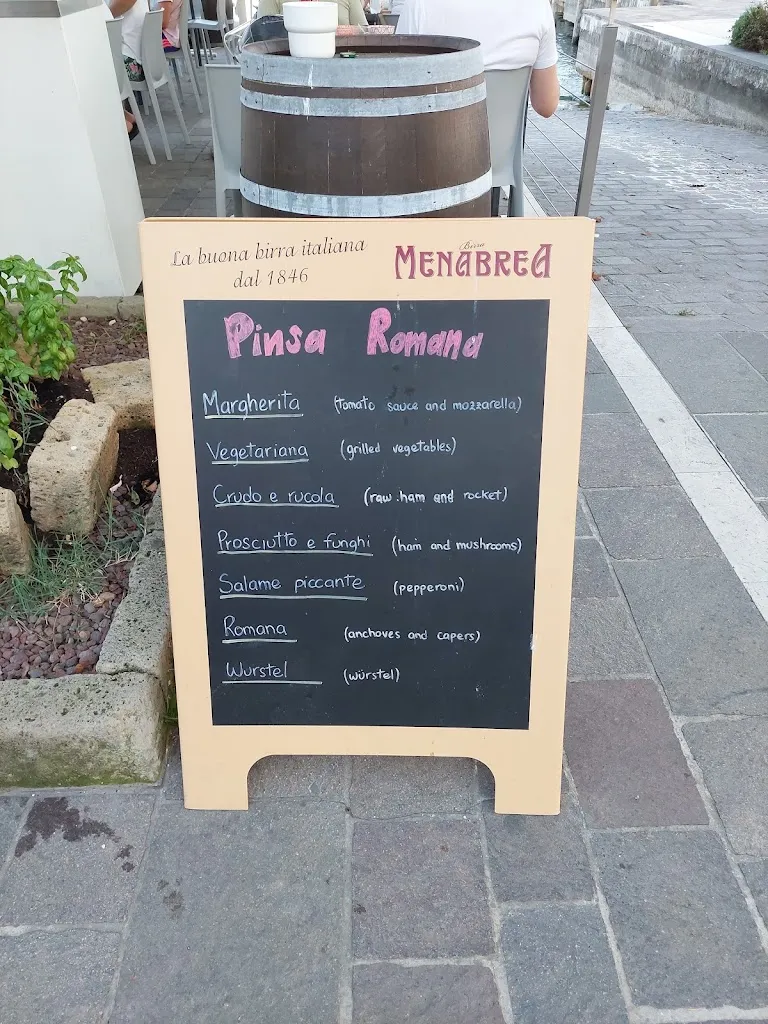 La buona birra italiana
dal 1846
Birra
MENABREA
Pinsa Romana
Margherita (tomato sauce and mozzarella)
Vegetariana (grilled vegetables)
Crudo e rucola (raw ham and rocket)
Prosciutto e funghi (ham and mushrooms)
Salame piccante (pepperoni)
Romana (anchoves and capers)
Wurstel (würstel)